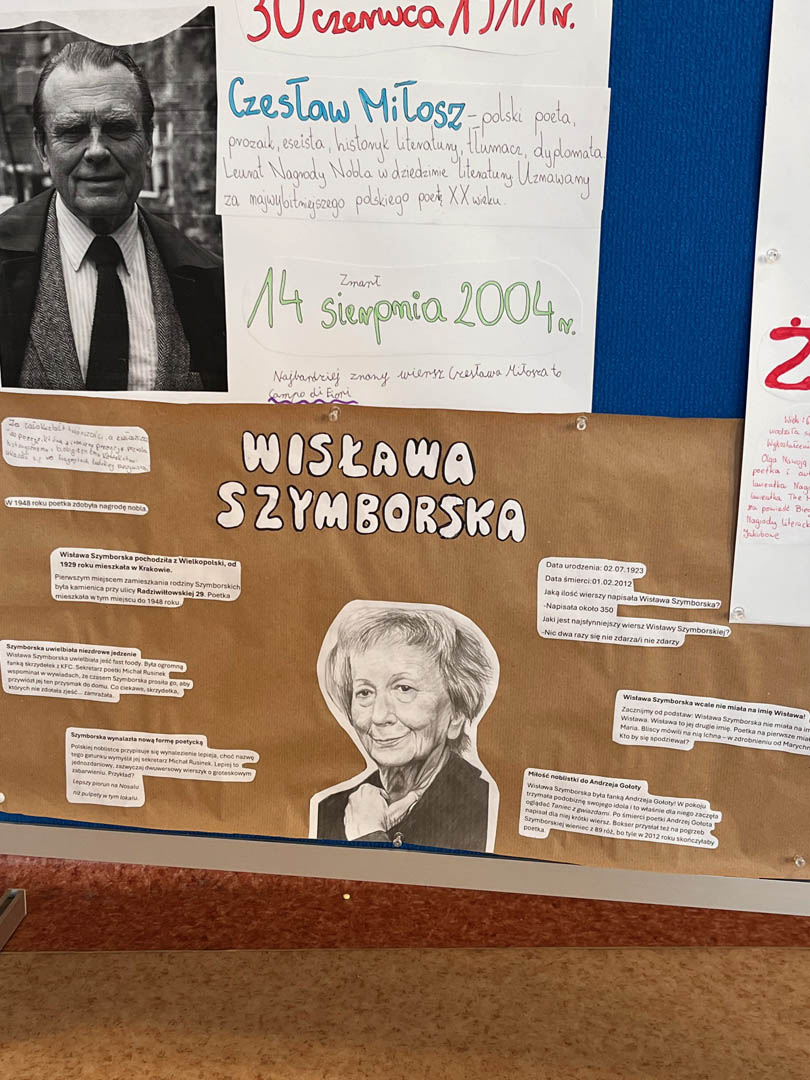 30 czerwca 1911 r.
Czesław Miłosz - polski poeta,
prozaik, eseista, historyk literatury, tłumacz, dyplomata
Leurat Nagrody Nobla w dziedzinie literatury Uznawany
za najwybitniejszego polskiego poetę XX wieku.
Zmarł
14 sierpnia 2004 r.
Najbardziej znany wiersz Czesława Miłosza to
Campo di Fiori
WISŁAWA
SZYMBORSKA
Za całokształt twórczości, a zwłaszcza
W 1948 roku poetka zdobyła nagrodę nobla
Wisława Szymborska pochodziła z Wielkopolski, od
1929 roku mieszkała w Krakowie.
Pierwszym miejscem zamieszkania rodziny Szymborskich
była kamienica przy ulicy Radziwiłłowskiej 29. Poetka
mieszkała w tym miejscu do 1948 roku
Szymborska uwielbiała niezdrowe jedzenie
Wisława Szymborska uwielbiała jeść fast foody. Była ogromną
fanką skrzydełek z KFC. Sekretarz poetki Michał Rusinek
wspominał w wywiadach, że czasem Szymborska prosiła go, aby
przywiózł jej ten przysmak do domu. Co ciekawe, skrzydełka,
których nie zdołała zjeść... zamrażała.
Szymborska wynalazła nową formę poetycką
Polskiej noblistce przypisuje się wynalezienie lepieja, choć nazwę
tego gatunku wymyślił jej sekretarz Michał Rusinek. Lepiej to
jednozdaniowy, zazwyczaj dwuwersowy wierszyk o groteskowym
zabarwieniu. Przykład?
Lepszy piorun na Nosalu
Niż pulpety w tym lokalu.
Data urodzenia: 02.07.1923
Data śmierci:01.02.2012
Jaką ilość wierszy napisała Wisława Szymborska?
-Napisała około 350
Jaki jest najsłynniejszy wiersz Wisławy Szymborskiej?
-Nic dwa razy się nie zdarza/i nie zdarzy
Wisława Szymborska wcale nie miała na imię Wisława!
Zacznijmy od podstaw: Wisława Szymborska nie miała na im
Wisława. Wisława to jej drugie imię. Poetka na pierwsze miał
Maria. Bliscy mówili na nią Ichna – w zdrobnieniu od Marychn
Kto by się spodziewał?
Miłość noblistki do Andrzeja Gołoty
Wisława Szymborska była fanką Andrzeja Gołoty! W pokoju
trzymała podobiznę swojego idola i to właśnie dla niego zaczęła
oglądać Taniec z gwiazdami. Po śmierci poetki Andrzej Gołota
napisał dla niej krótki wiersz. Bokser przysłał też na pogrzeb
Szymborskiej wieniec z 89 róż, bo tyle w 2012 roku skończyłaby
poetka.
Ż
Olga Nawoja
poetka i au
laureatka Nag
laureatka The M
za powieść Bieg
Nagrody Literack
Jakubowe